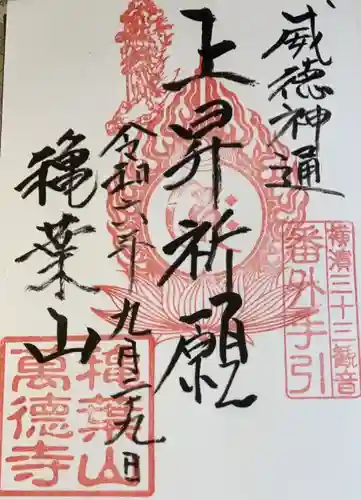 威徳神通
上昇祈願
令和六年九月二十九日
穐葉山
横濱三十三観音
番外手引
穐葉山
萬德寺